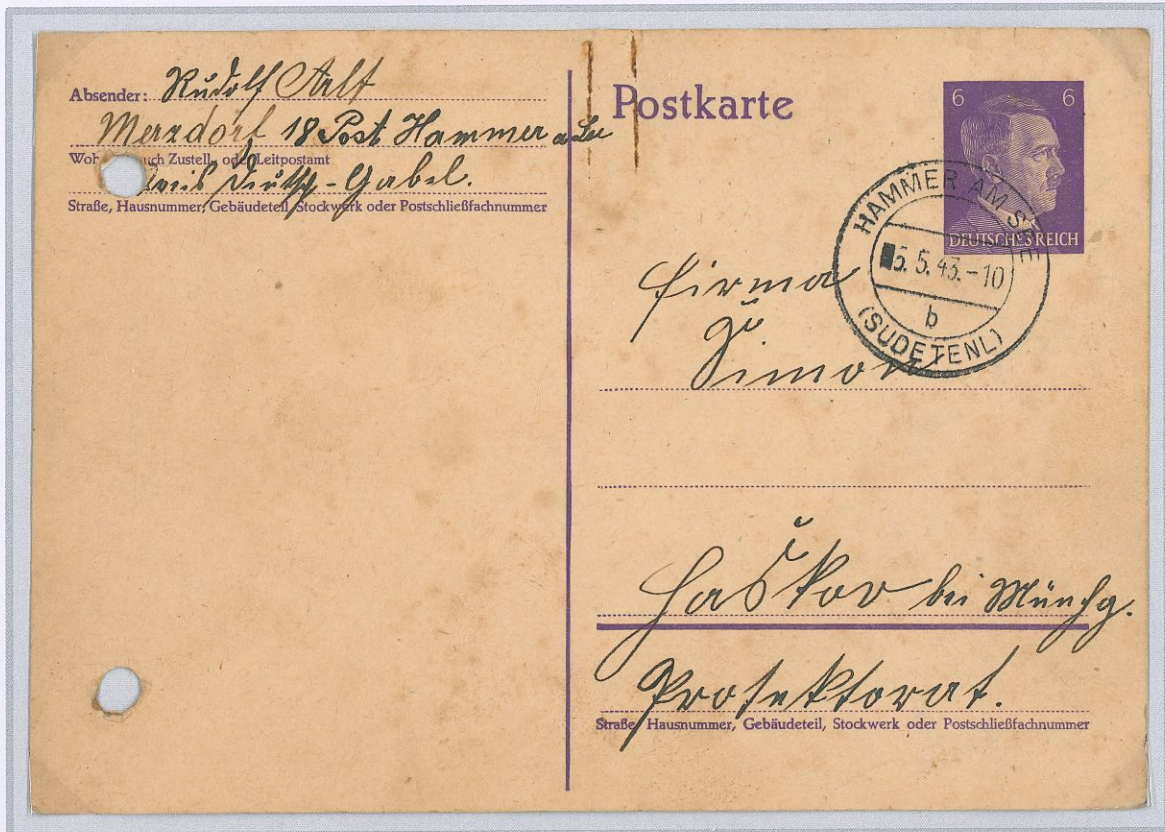 Absender: Rudolf Arlt
Merzdorf 18 Post Hammer a. See
Woh auch Zustell- oder Leitpostamt
Kreis Deutsch-Gabel.
Straße, Hausnummer, Gebäudeteil, Stockwerk oder Postschließfachnummer
Postkarte
6 6
DEUTSCHES REICH
HAMMER AM SEE
5.5.43.-10
b
(SUDETENL)
Firma
Simon
Haškov bei Münchg.
Protektorat.
Straße, Hausnummer, Gebäudeteil, Stockwerk oder Postschließfachnummer